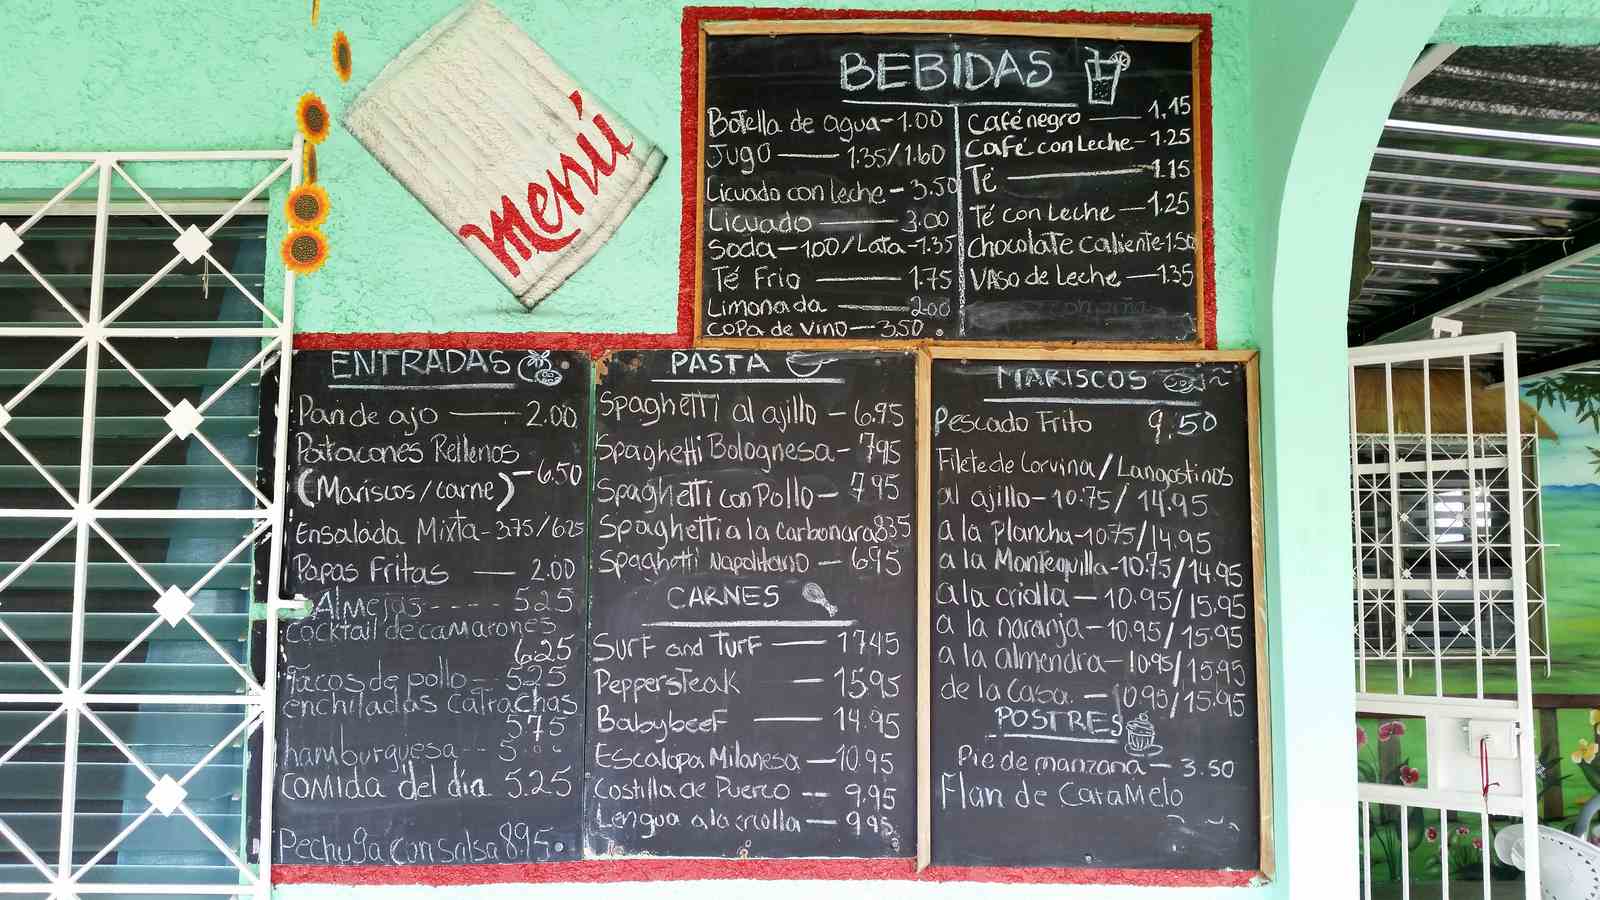 menú
BEBIDAS
Botella de agua-1.00
Jugo — 1.35/1.60
Licuado con leche - 3.50
Licuado — 3.00
Soda - 1.00/Lata - 1.35
Té Frio — 1.75
Limonada — 2.00
Copa de vino — 3.50
Café negro — 1.15
Café con Leche - 1.25
Té — 1.15
Té con Leche — 1.25
Chocolate caliente - 1.50
Vaso de Leche — 1.35
ENTRADAS
Pan de ajo — 2.00
Patacones Rellenos
(Mariscos/carne) - 6.50
Ensalada Mixta - 3.75/6.25
Papas Fritas — 2.00
Almejas ---- 5.25
cocktail de camarones
6.25
Tacos de pollo -- 5.25
enchiladas catrachas
5.75
hamburguesa -- 5.
comida del día 5.25
Pechuga con salsa 8.95
PASTA
Spaghetti al ajillo - 6.95
Spaghetti Bolognesa - 7.95
Spaghetti con Pollo - 7.95
Spaghetti a la Carbonara 8.35
Spaghetti Napolitano — 6.95
CARNES
Surf and Turf — 17.45
Peppersteak — 15.95
Babybeef — 14.95
Escalopa Milanesa — 10.95
Costilla de Puerco -- 9.95
Lengua a la criolla — 9.95
MARISCOS
Pescado Frito 9.50
Filete de Corvina/Langostinos
al ajillo - 10.75/14.95
a la plancha - 10.75/14.95
a la Mantequilla - 10.75/14.95
a la criolla — 10.95/15.95
a la naranja - 10.95/15.95
a la almendra - 10.95/15.95
de la casa. — 10.95/15.95
POSTRES
Pie de manzana - 3.50
Flan de Caramelo